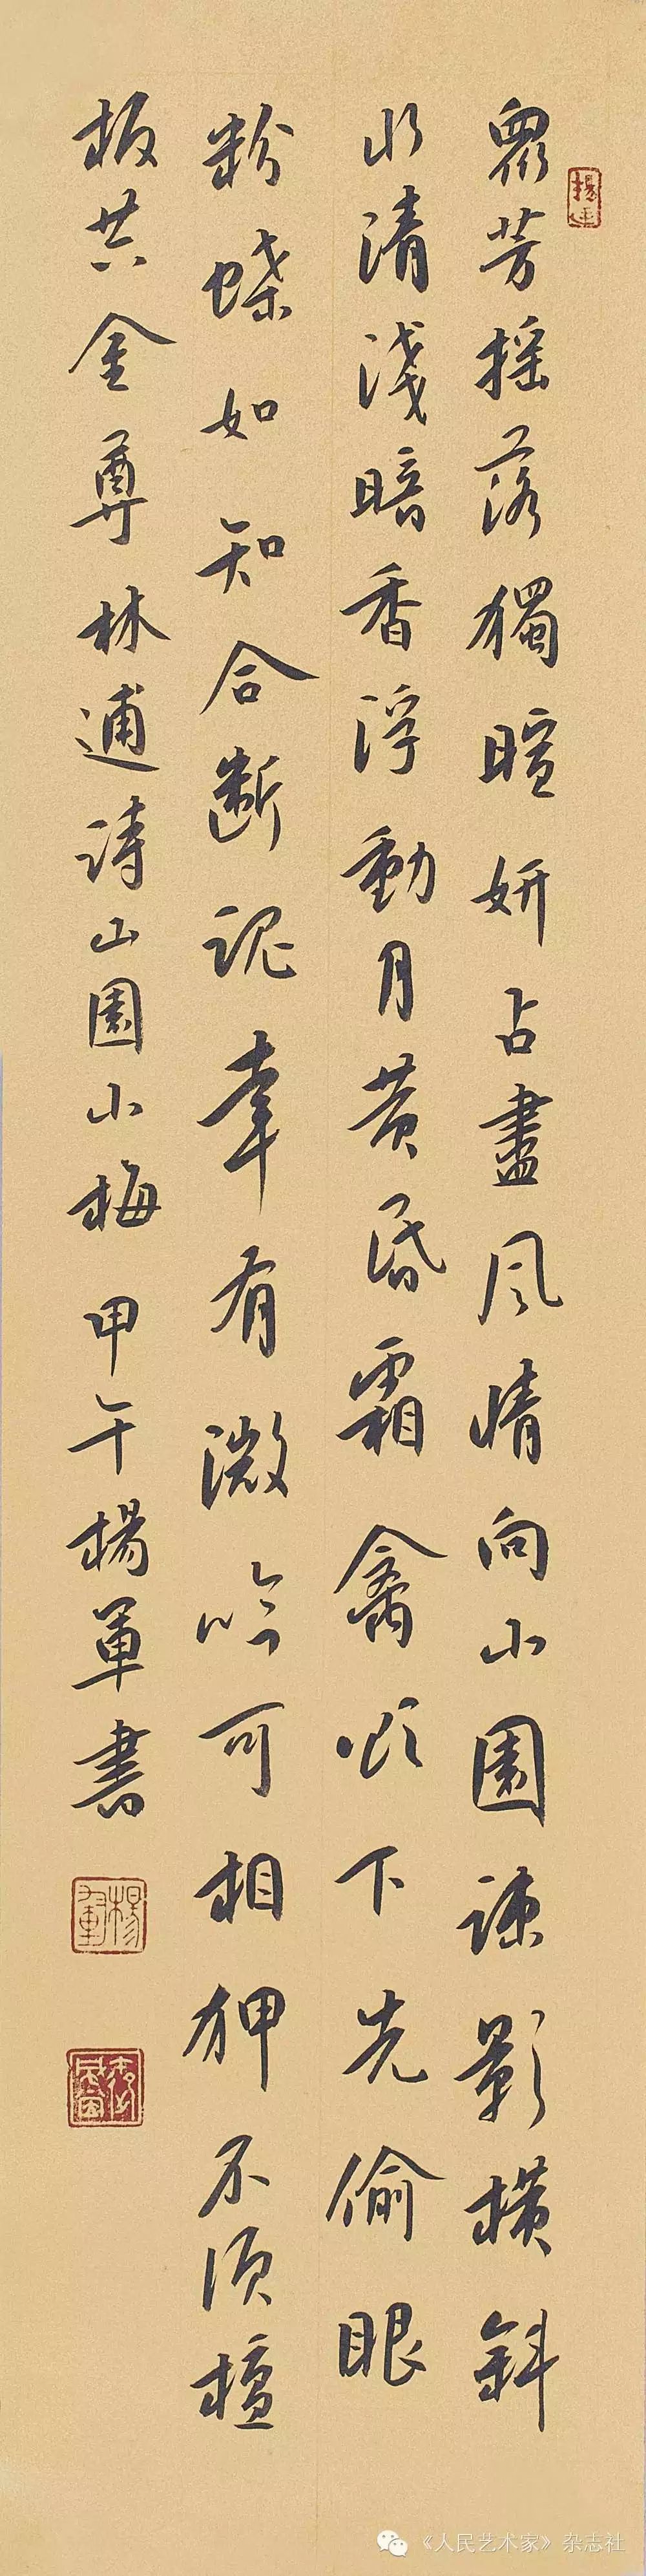 衆芳摇落獨暄妍占盡風情向小園疎影橫斜
水清淺暗香浮動月黄昏霜禽欲下先偷眼
粉蝶如知合断魂幸有微吟可相狎不須檀
板共金尊林逋詩山園小梅甲午楊軍書
楊軍
《人民艺术家》杂志社